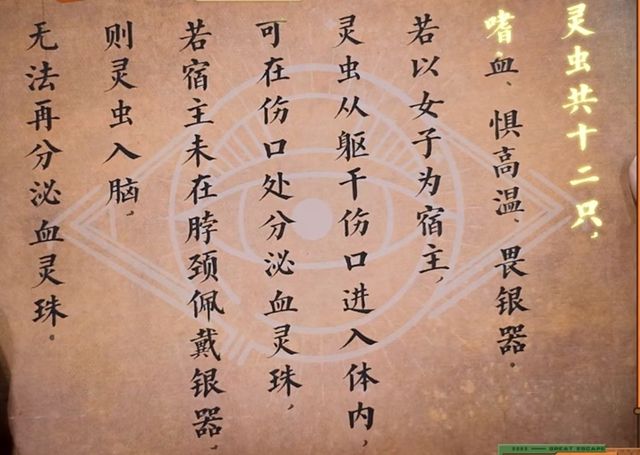 灵虫共十二只，
嗜血、惧高温、畏银器。
若以女子为宿主，
灵虫从躯干伤口进入体内，
可在伤口处分泌血灵珠，
若宿主未在脖颈佩戴银器，
则灵虫入脑，
无法再分泌血灵珠。
GREAT ESCAPE